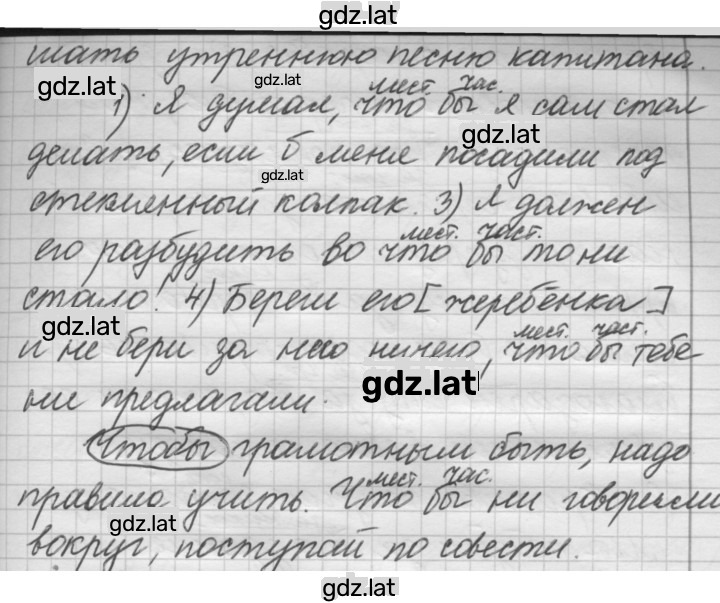 gdz.lat
шать утреннюю песню капитана.
gdz.lat gdz.lat мест. час.
1) Я думал, что бы я сам стал
gdz.lat
делать, если б меня посадили под
gdz.lat
стеклянный колпак. 3) Я должен
мест. част.
его разбудить во что бы то ни
стало! 4) Береги его [жеребёнка]
gdz.lat мест. част.
и не бери за него ничего, что бы тебе
gdz.lat
ни предлагали.
Чтобы грамотным быть, надо
мест. час.
правила учить. Что бы ни говорили
gdz.lat
вокруг, поступай по совести.
gdz.lat